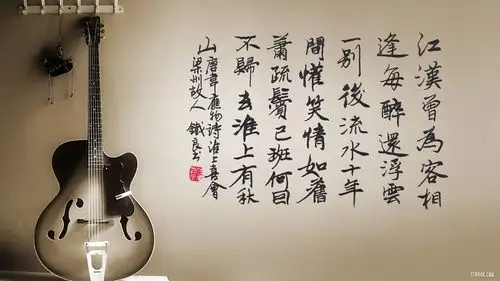 江漢曾為客相
逢每醉還浮雲
一別後流水十年
間懽笑情如舊
蕭疏鬢已班何因
不歸去淮上有秋
山 唐韋應物詩淮上喜會
梁州故人